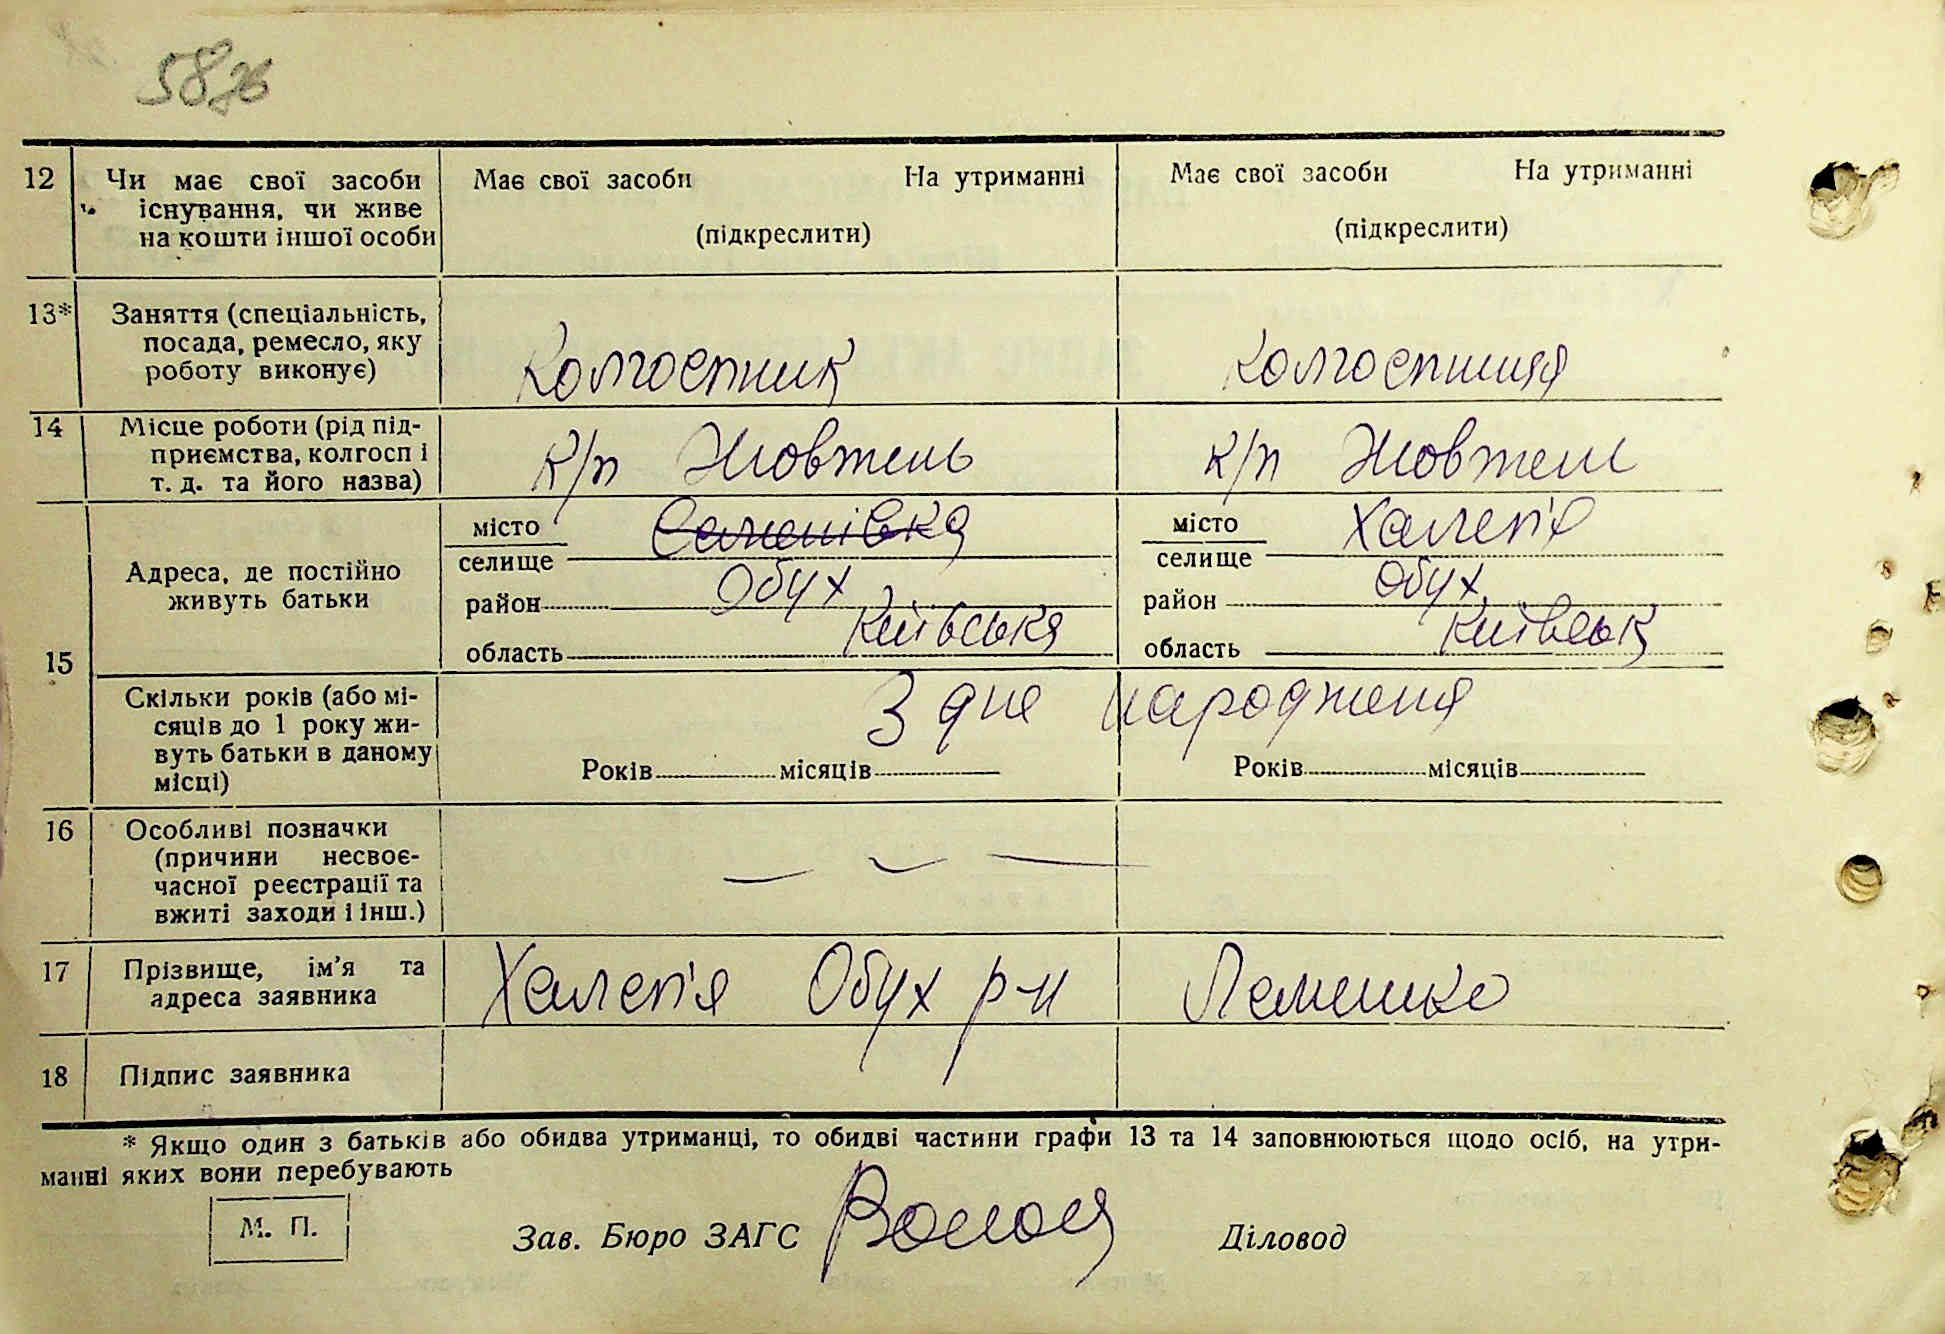 58
12 Чи має свої засоби існування, чи живе на кошти іншої особи
Має свої засоби На утриманні
(підкреслити)
Має свої засоби На утриманні
(підкреслити)
13* Заняття (спеціальність, посада, ремесло, яку роботу виконує)
Колгоспник
колгоспниця
14 Місце роботи (рід підприємства, колгосп і т. д. та його назва)
к/п Жовтень
к/п Жовтень
15
Адреса, де постійно живуть батьки
місто
селище
Семенівка
район Обух
область Київська
місто
селище
Халеп'я
район Обух
область Київськ
Скільки років (або місяців до 1 року живуть батьки в даному місці)
З дня народження
Років місяців
Років місяців
16 Особливі позначки (причини несвоєчасної реєстрації та вжиті заходи і інш.)
17 Прізвище, ім'я та адреса заявника
Халеп'я Обух р-н Лемешко
18 Підпис заявника
* Якщо один з батьків або обидва утриманці, то обидві частини графи 13 та 14 заповнюються щодо осіб, на утри-
манні яких вони перебувають
М. П.
Зав. Бюро ЗАГС
Діловод